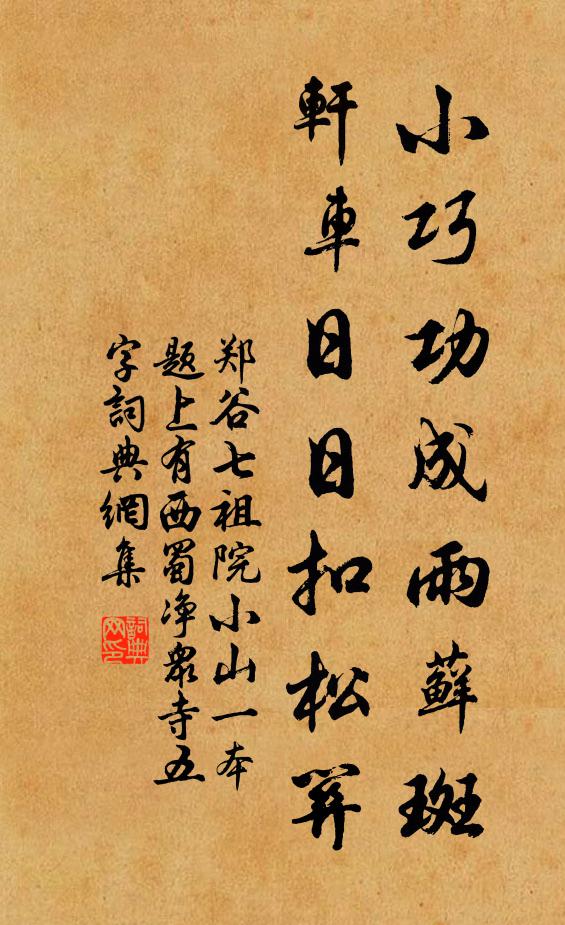 小巧功成雨蘚斑
軒車日日扣松關
郑谷七祖院小山一本
题上有西蜀净衆寺五
字詞典網集
詞典网印